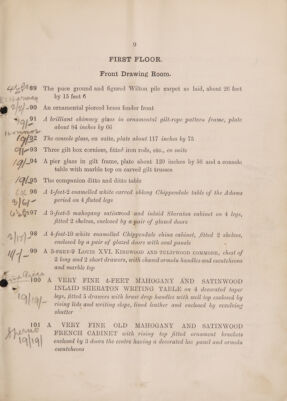 9
FIRST FLOOR.
Front Drawing Room.
89 The puce ground and figured Wilton pile carpet as laid, about 26 feet
by 15 feet 6
90 An ornamental pierced brass fender front
91 A brilliant chimney glass in ornamental gilt-rope pattern frame, plate
about 84 inches by 66
92 The console glass, en suite, plate about 117 inches by 75
93 Three gilt box cornices, fitted iron rods, etc., en suite
94 A pier glass in gilt frame, plate about 120 inches by 56 and a console
table with marble top on carved gilt trusses
95 The companion ditto and ditto table
96 A 4-feet-2 enamelled white carved oblong Chippendale table of the Adams
period on 4 fluted legs
97 A 3-feet-5 mahogany satinwood and inlaid Sheraton cabinet on 4 legs,
fitted 2 shelves, enclosed by a pair of glazed doors
98 A 4-feet-10 white enamelled Chippendale china cabinet, fitted 2 shelves,
enclosed by a pair of glazed doors with oval panels
99 A 3-feet-9 Louis XVI. Kingwood and tulipwood commode, chest of
2 long and 2 short drawers, with chased ormolu handles and escutcheons
and marble top
100 A VERY FINE 4-FEET MAHOGANY AND SATINWOOD
INLAID SHERATON WRITING TABLE on 4 decorated taper
legs, fitted 5 drawers with brass drop handles with well top enclosed by
rising lids and writing slope, lined leather and enclosed by revolving
shutter
101 A VERY FINE OLD MAHOGANY AND SATINWOOD
FRENCH CABINET with rising top fitted ornament brackets
enclosed by 3 doors the centre having a decorated lac panel and ormolu
escutcheons
19/19/-